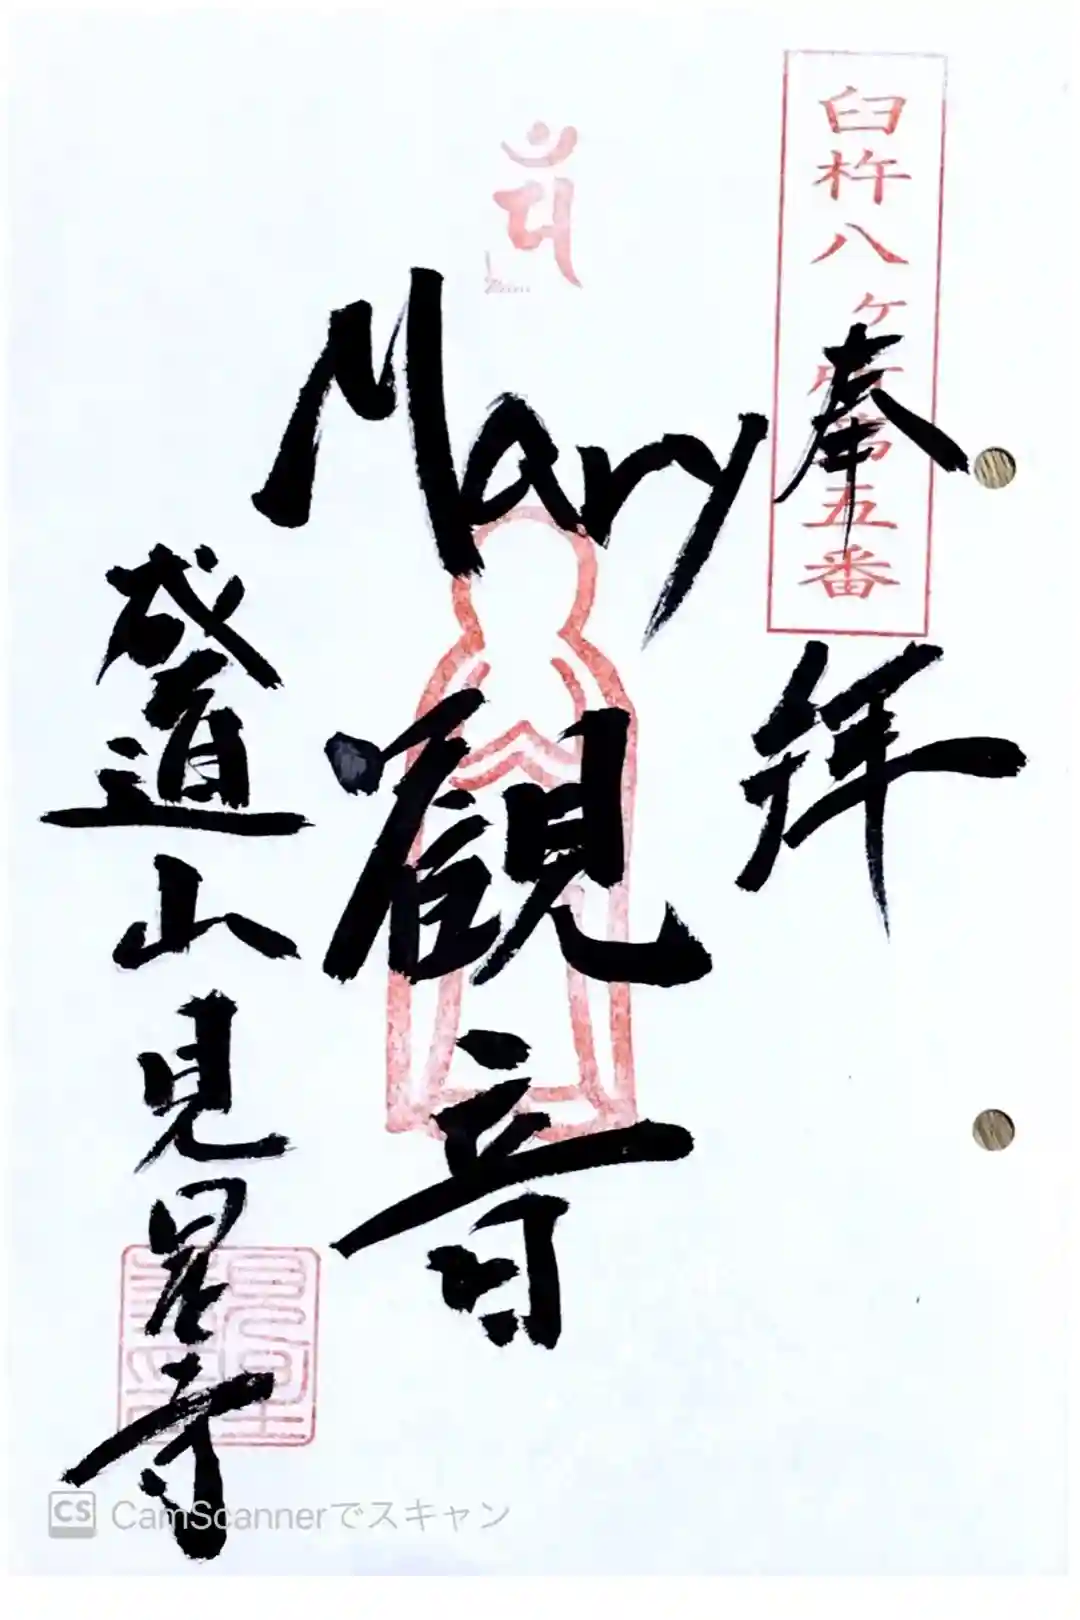 臼杵八ヶ所第五番
奉拝
Mary
観音
成道山見星寺
CS CamScannerでスキャン